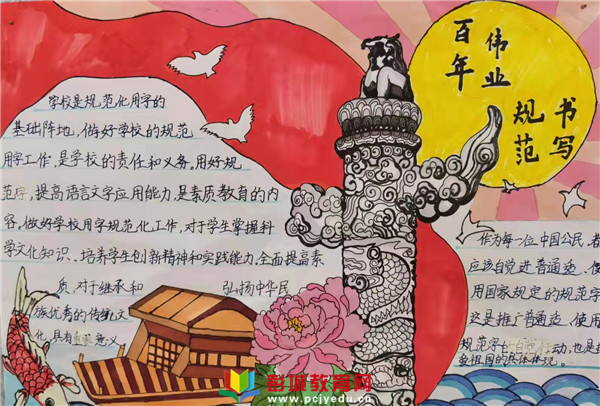 百年
伟业
规范
书写
学校是规范化用字的
基础阵地,做好学校的规范
用字工作,是学校的责任和义务。用好规
范字,提高语言文字应用能力,是素质教育的内
容,做好学校用字规范化工作,对于学生掌握科
学文化知识、培养学生创新精神和实践能力,全面提高素
质,对于继承和 弘扬中华民
族优秀的传统文
化,具有 意义
作为每一位中国公民,者
应该自觉进普通话、使
用国家规定的规范字
这是推广普通话、使用
规范字 动,也是
爱祖国的具体体现。
彭城教育网
www.pcjyedu.cn